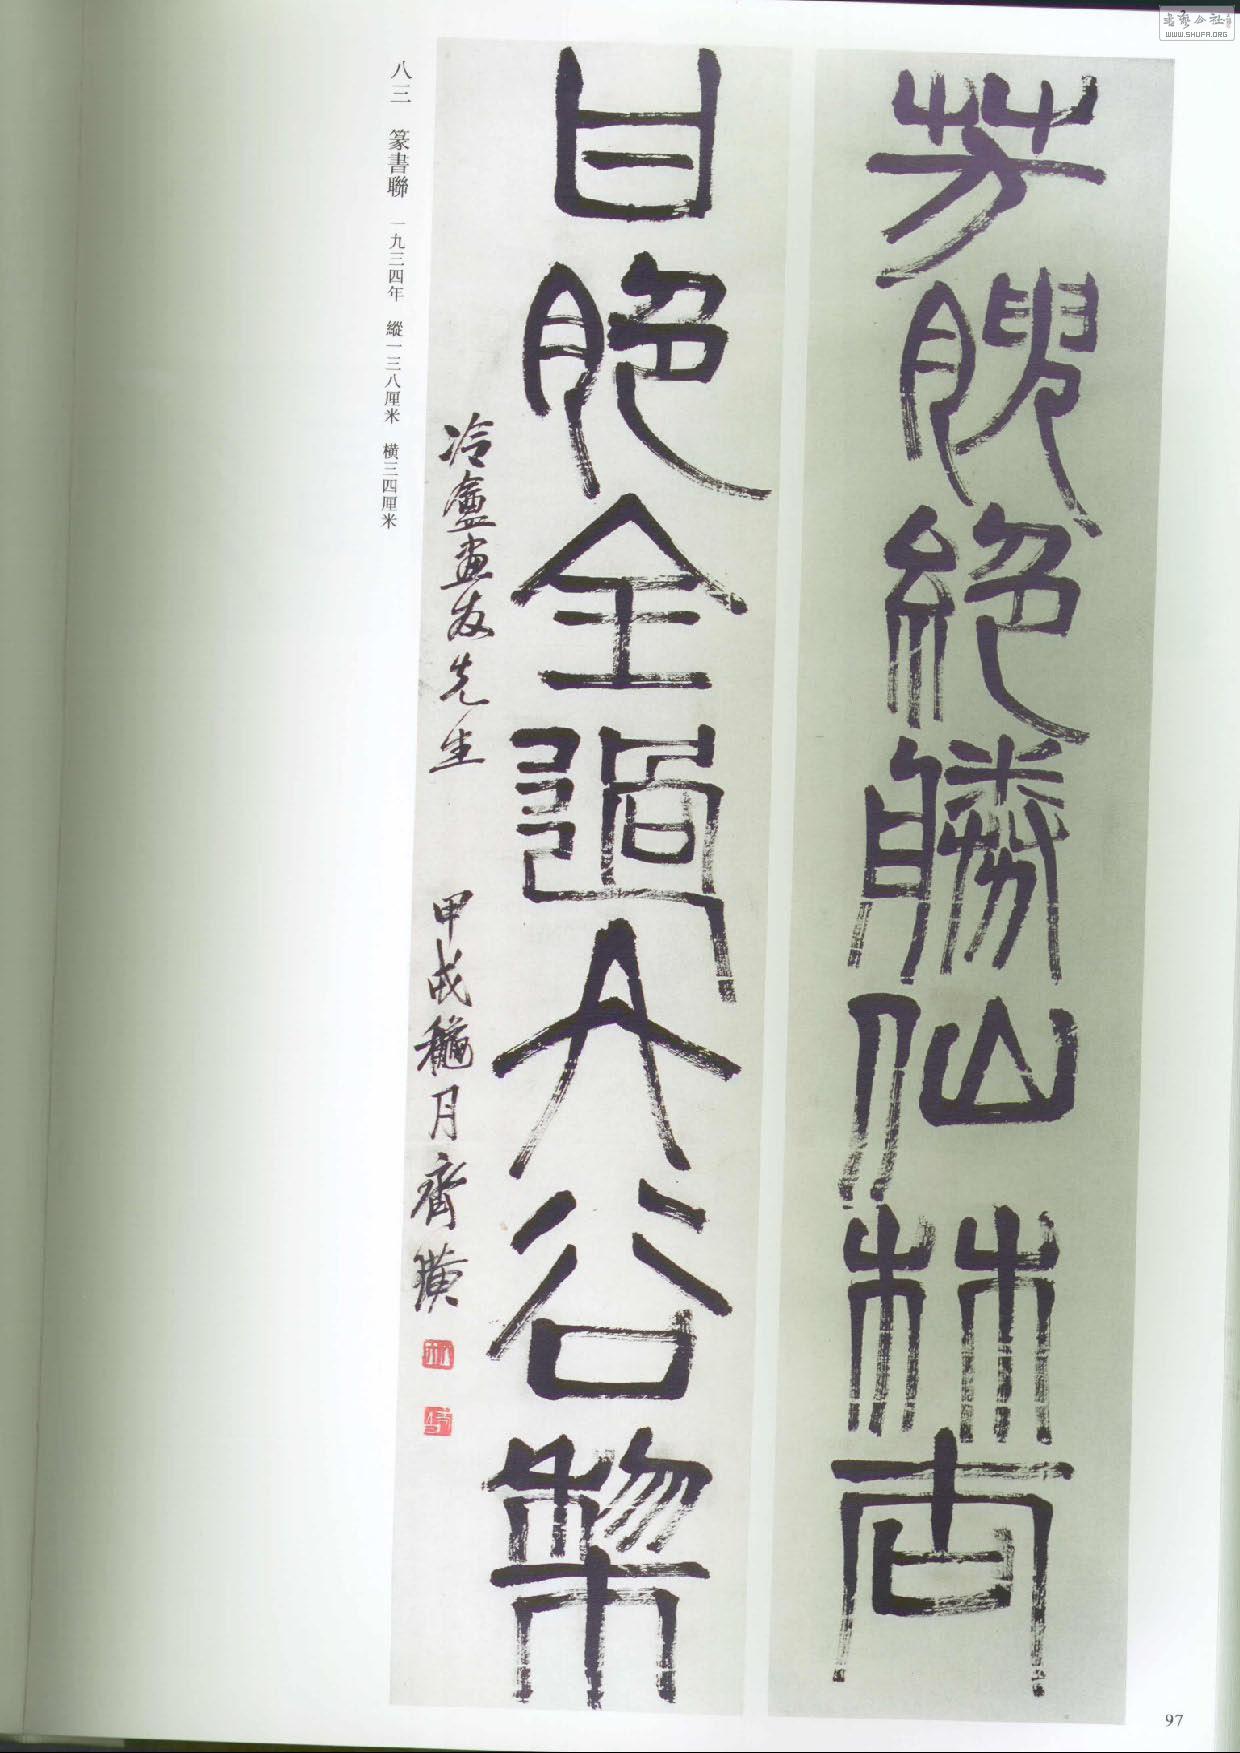 芳腴絕勝仙林杏
甘脆全過大谷棃
冷盦畫友先生 甲戌龝月齊璜
八三 篆書聯 一九三四年 縱一三八厘米 橫三四厘米
97
书艺公社
WWW.SHUFA.ORG